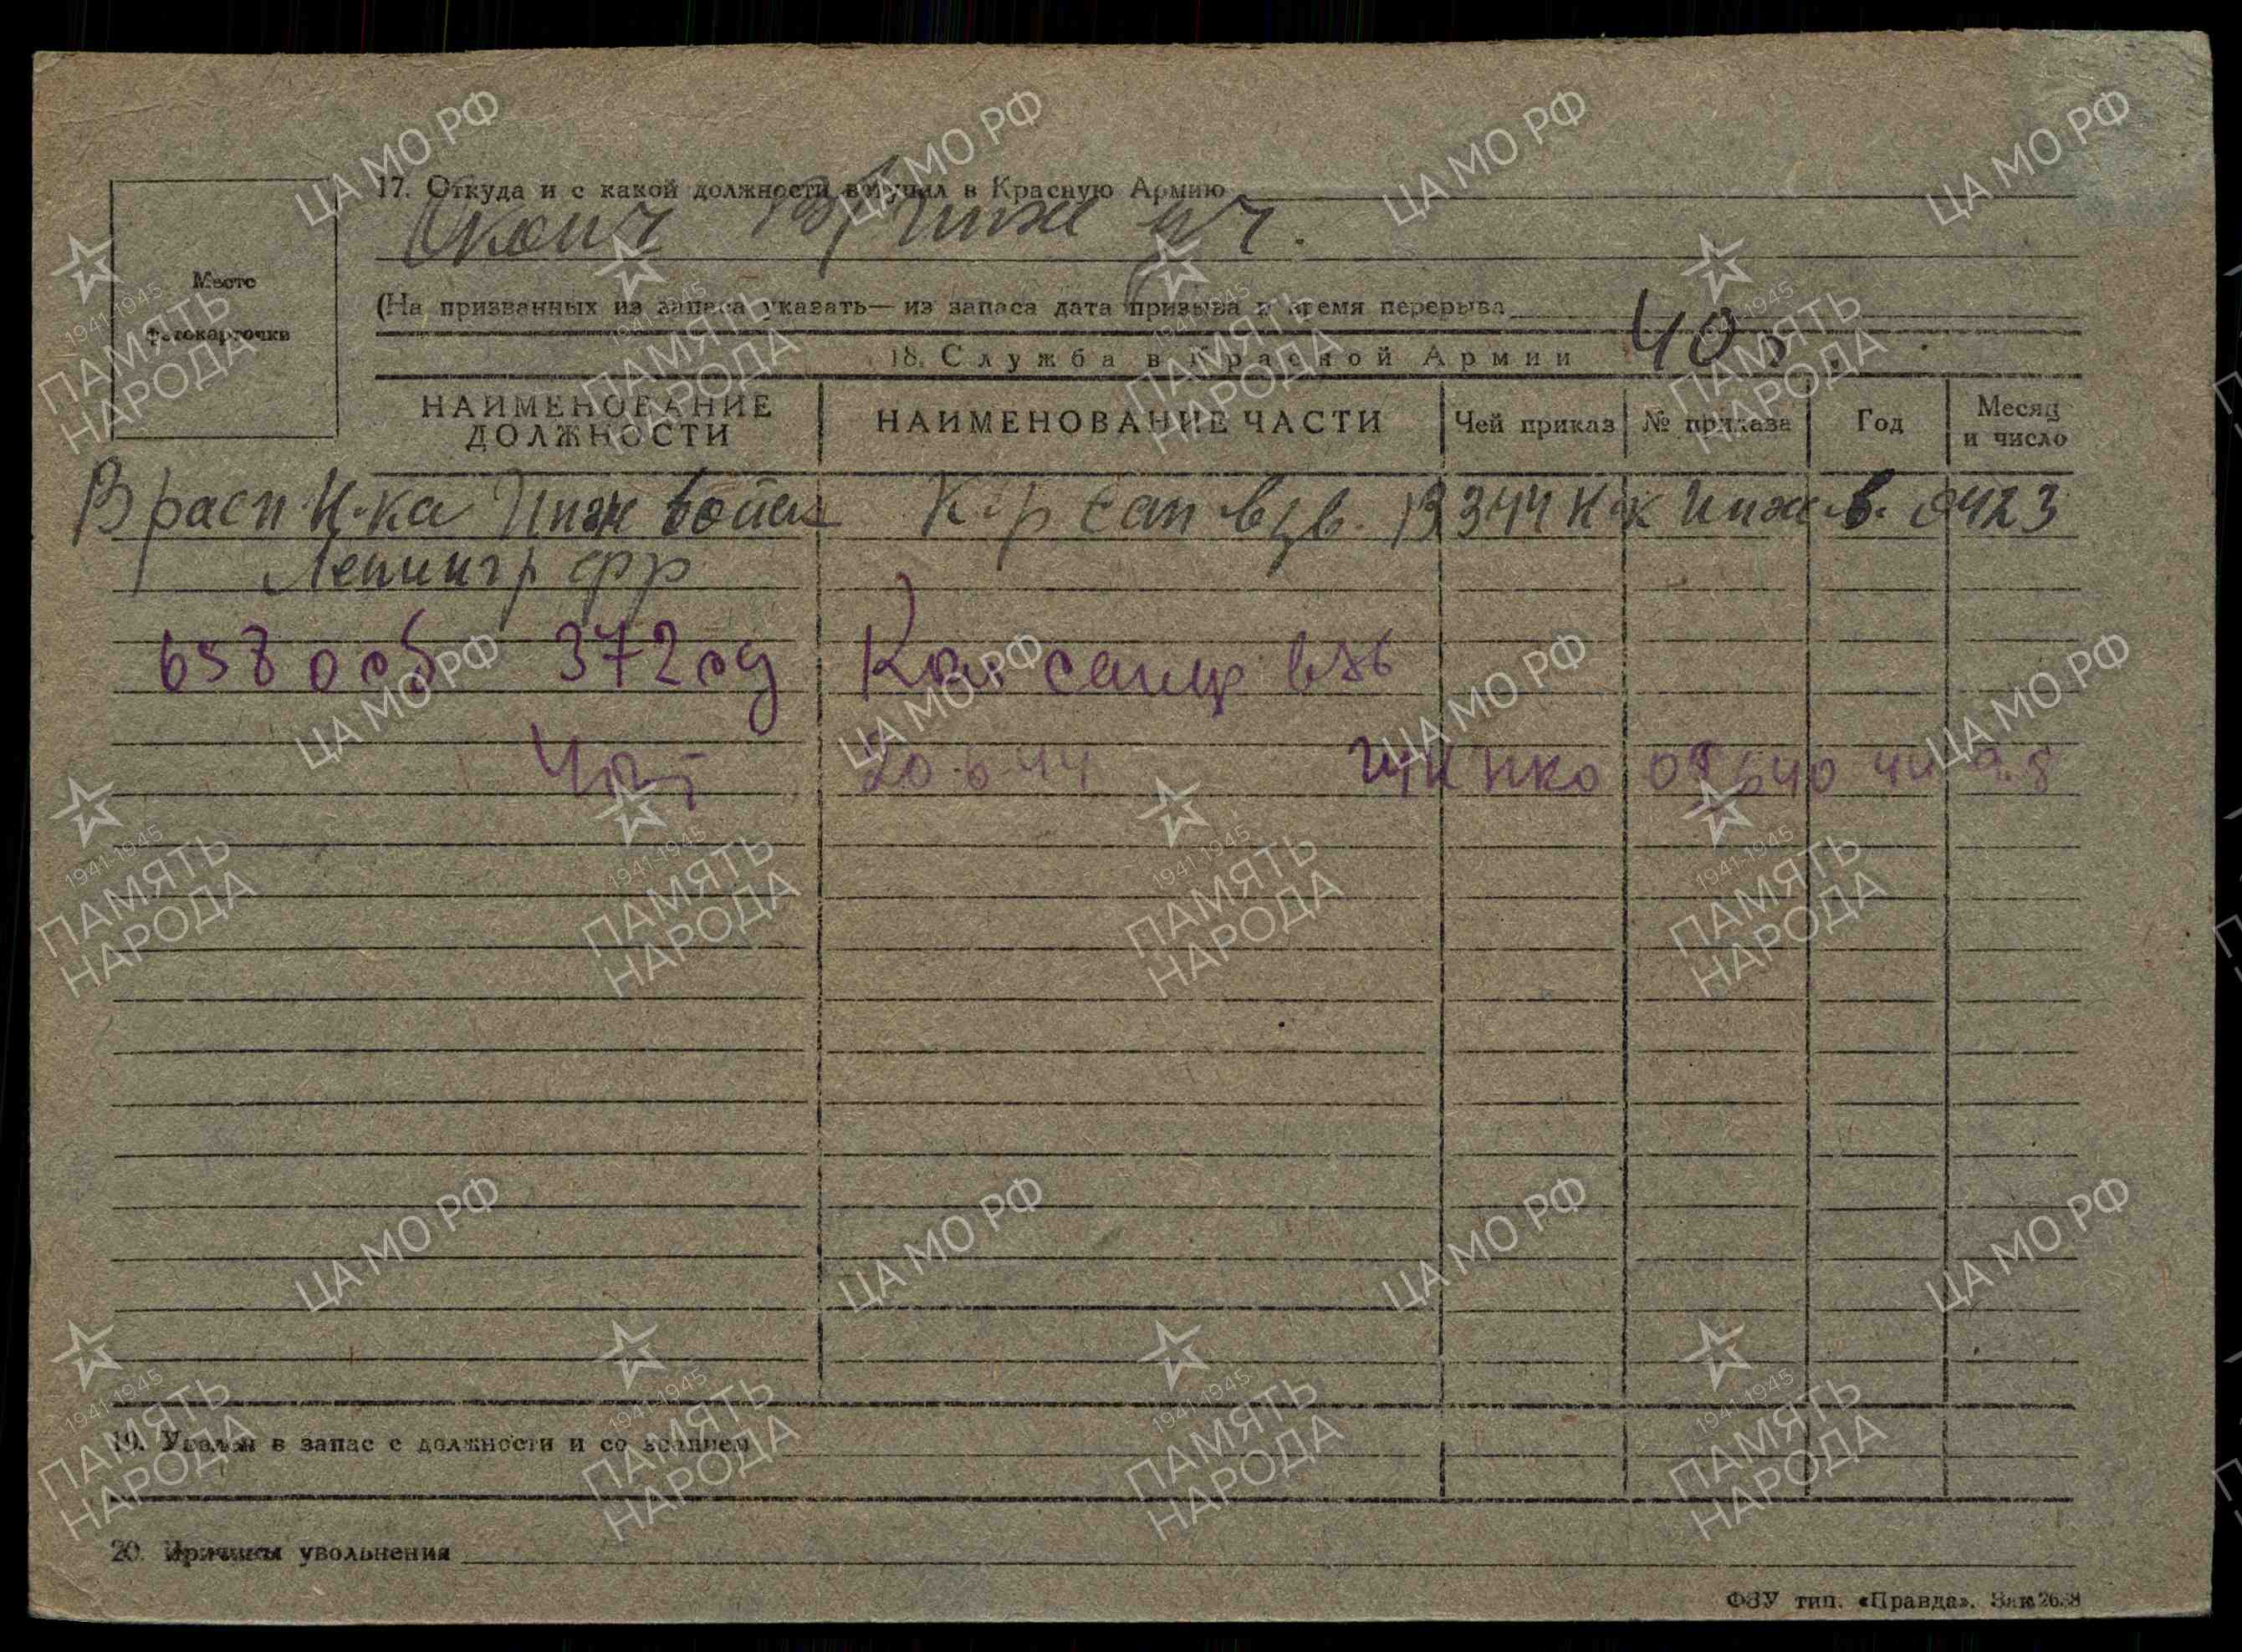 17. Откуда и с какой должности вступил в Красную Армию
Оконч инж уч.
Место
фотокарточки
(На призванных из запаса указать— из запаса дата призыва и время перерыва
40 г.
18. Служба в Красной Армии
НАИМЕНОВАНИЕ ДОЛЖНОСТИ
НАИМЕНОВАНИЕ ЧАСТИ
Чей приказ
№ приказа
Год
Месяц и число
В расп Н-ка Инж войск К-р сап взв. 13 3 44 Н-к инж. в. 0423
Ленингр фр
658 осб 372 сд Ком сапер взв
20.6.44 ГУК НКО 44 9.8
19. Уволен в запас с должности и со званием
20. Причины увольнения
ФЗУ тип. «Правда». Зак 2638
ЦА МО РФ
1941-1945
ПАМЯТЬ
НАРОДА